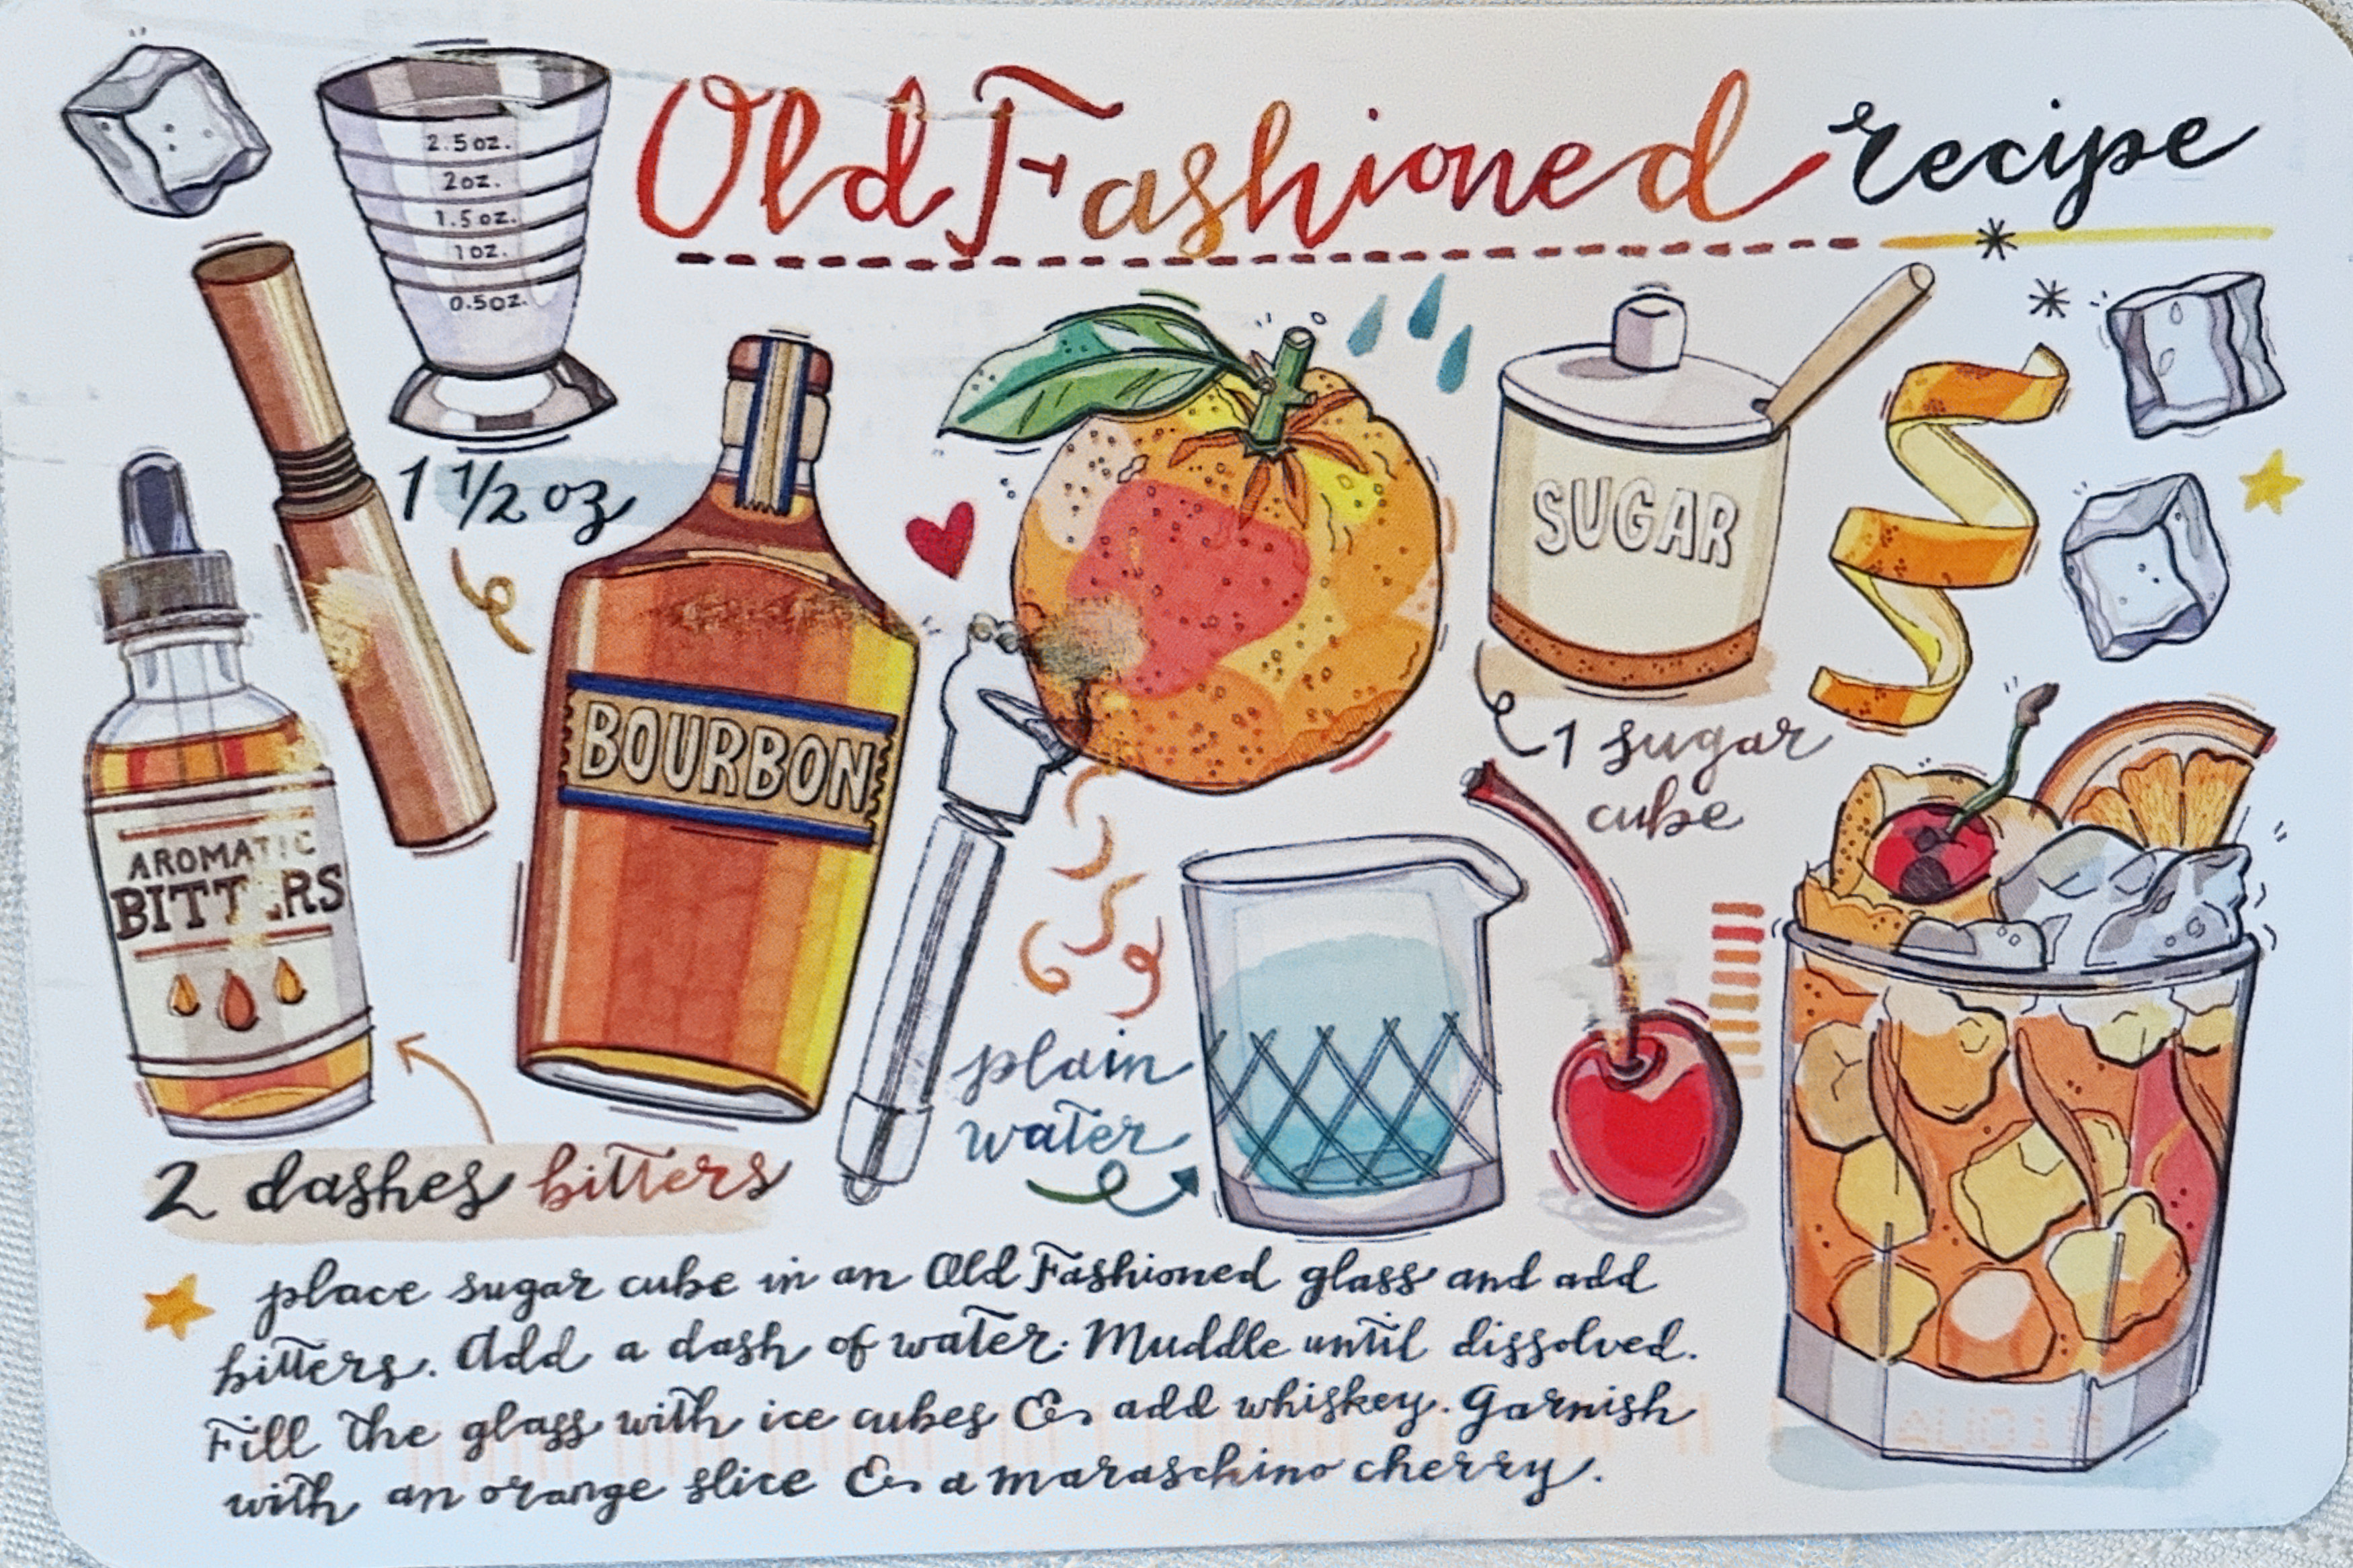 Old Fashioned recipe
2.5oz.
2oz.
1.5oz.
1oz.
0.5oz.
1 1/2 oz
SUGAR
BOURBON
1 sugar
cube
AROMATIC
BITTERS
plain
water
2 dashes bitters
place sugar cube in an Old Fashioned glass and add
bitters. Add a dash of water. Muddle until dissolved.
Fill the glass with ice cubes & add whiskey. Garnish
with an orange slice & a maraschino cherry.